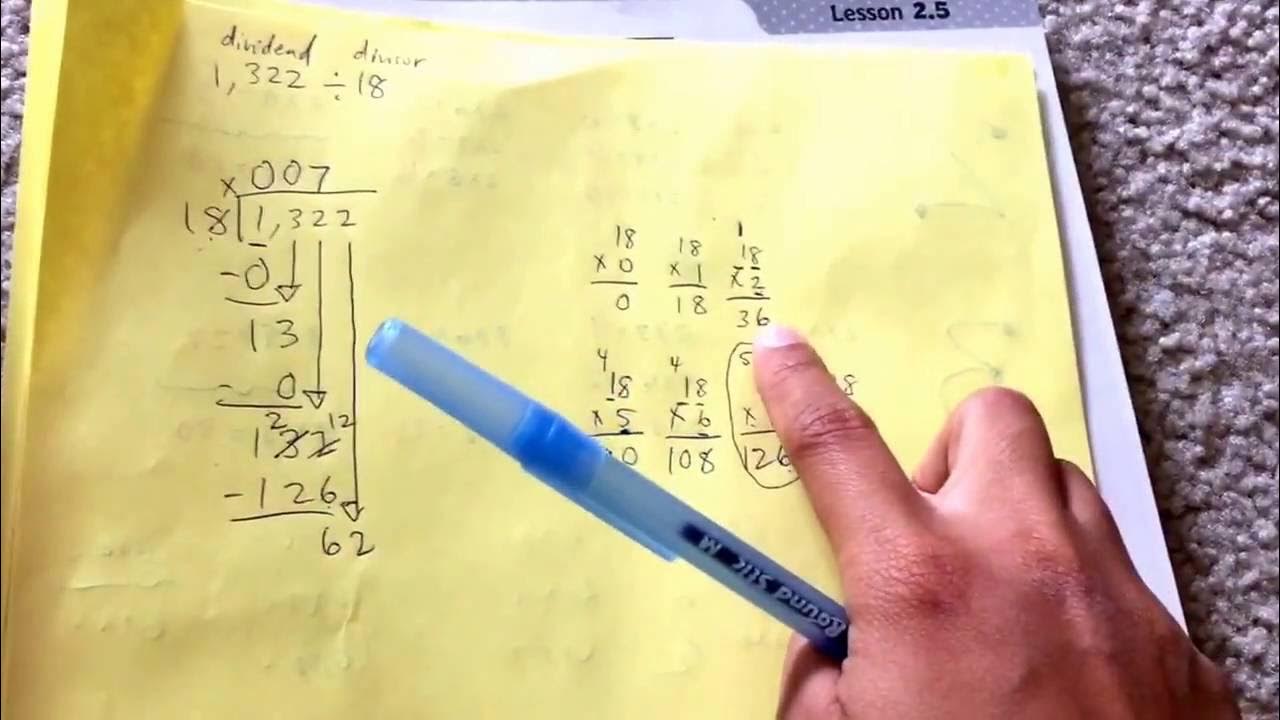 Lesson 2.5
dividend divisor
1,322 ÷ 18
x 007
18 1,322
-0
13
- 0
2 12
132
-126
62
1
18 18 18
x 0 x 1 x 2
0 18 36
4 4 5
18 18 8
x 5 x 6 x
0 108 126
Round Stic M